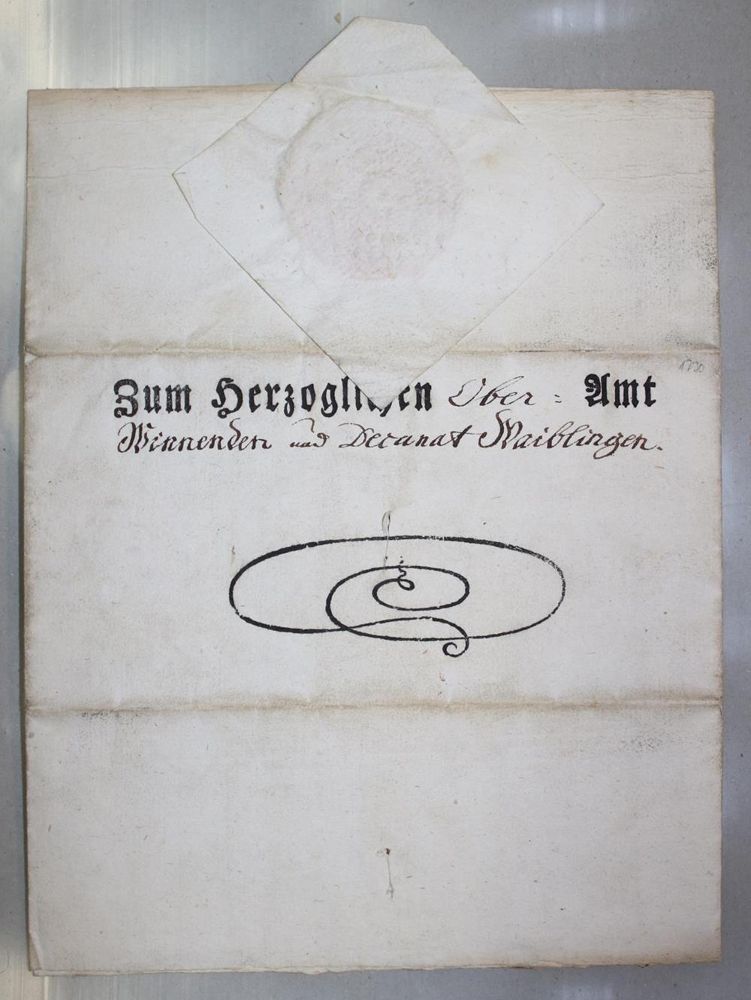 Zum Herzoglichen Ober = Amt
Winnenden und Decanat Waiblingen.